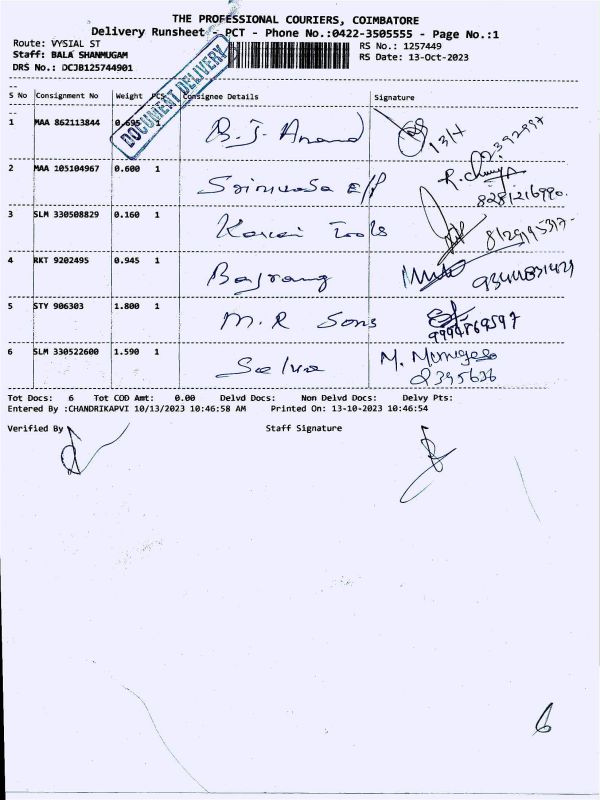 THE PROFESSIONAL COURIERS, COIMBATORE
Delivery Runsheet - PCT - Phone No.:0422-3505555 - Page No.:1
Route: VYSIAL ST RS No.: 1257449
Staff: BALA SHANMUGAM RS Date: 13-Oct-2023
DRS No.: DCJB125744901
DOCUMENT DELIVERY
S No Consignment No Weight PCS Consignee Details Signature
1 MAA 862113844 0.695 B.J. Anand 13/4 2392997
2 MAA 105104967 0.600 1 Srinivasa E/P 8281216990.
3 SLM 330508829 0.160 1 Kovai Tools 8129195317-
4 RKT 9202495 0.945 1 Bajrang 9344831421
5 STY 906303 1.800 1 M.R Sons 9994869597
6 SLM 330522600 1.590 1 Selva M. Murugesa 2395636
Tot Docs: 6 Tot COD Amt: 0.00 Delvd Docs: Non Delvd Docs: Delvy Pts:
Entered By :CHANDRIKAPVI 10/13/2023 10:46:58 AM Printed On: 13-10-2023 10:46:54
Verified By Staff Signature
6